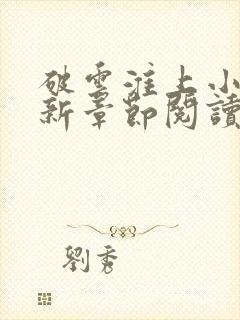 破雲淮上小
新章節閱讀
劉秀